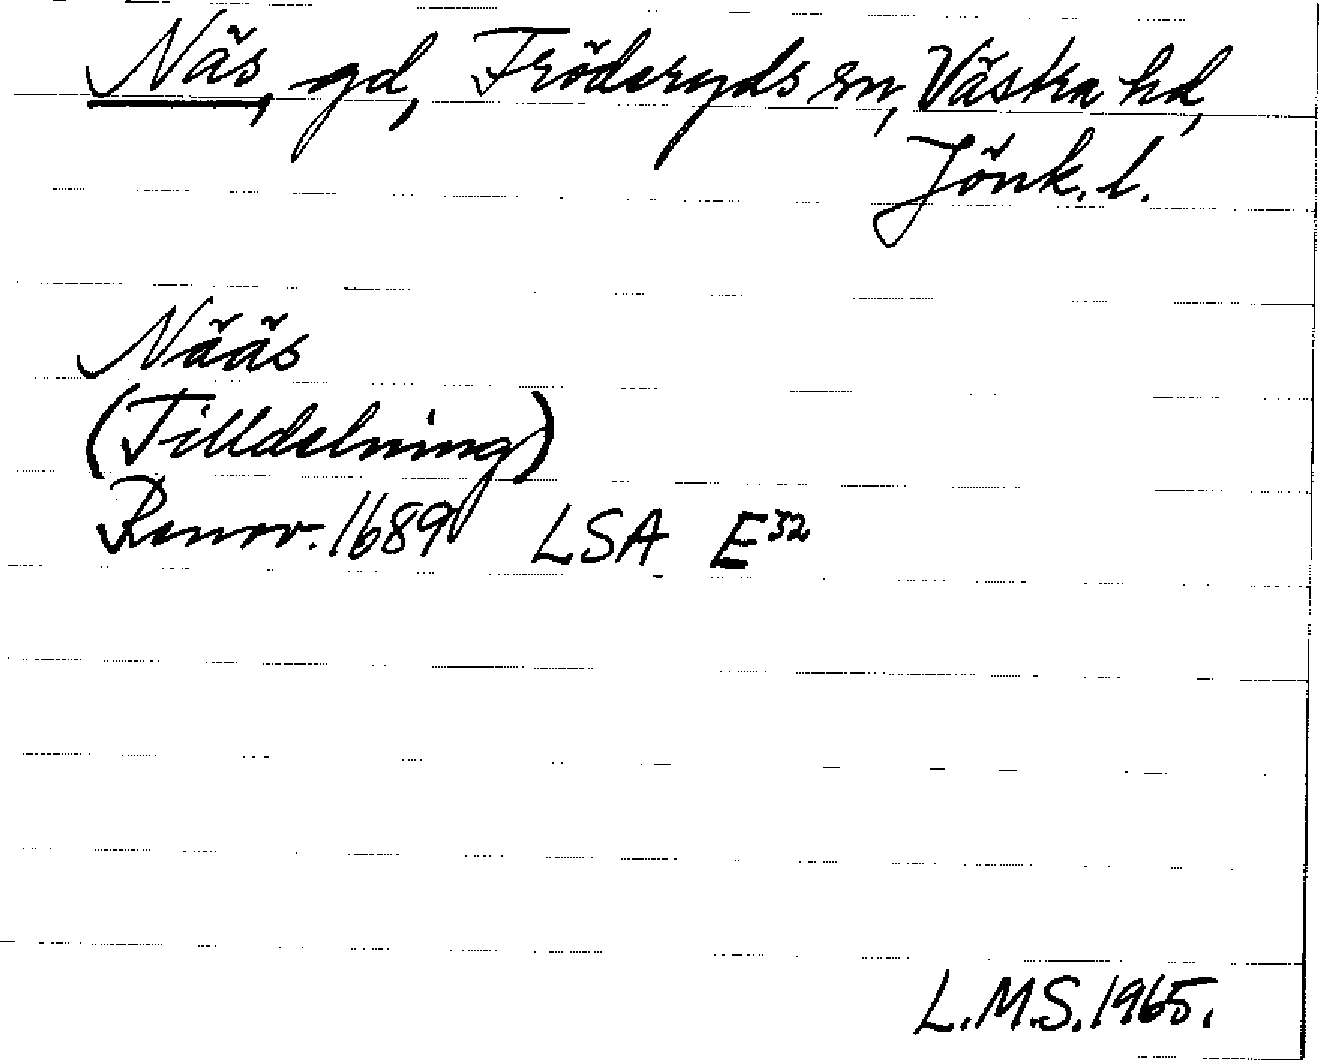 Näs, gd, Fröderyds sn, Västra hd,
Jönk. l.
Nääs
(Tilldelning)
Renov. 1689 LSA E32
L.M.S. 1965.